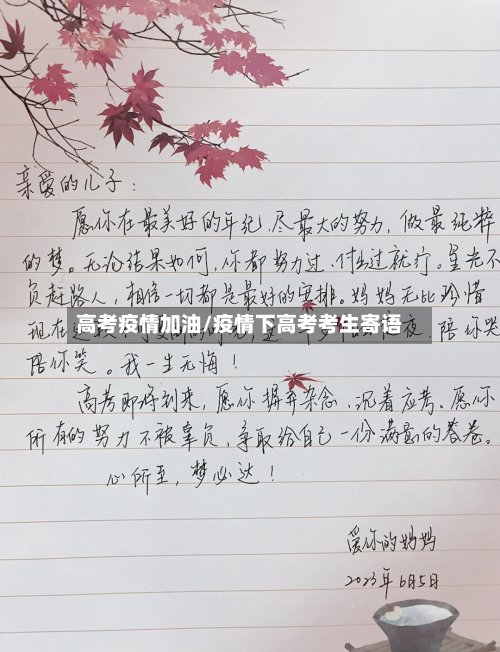 亲爱的儿子：
愿你在最美好的年纪，尽最大的努力，做最纯粹
的梦。无论结果如何，你都努力过，付出过就行。星光不
负赶路人，相信一切都是最好的安排。妈妈无比珍惜
现在
夜，陪你哭
高考疫情加油/疫情下高考考生寄语
陪你笑。我一生无悔！
高考即将到来，愿你摒弃杂念，沉着应考。愿你
所有的努力不被辜负，争取给自己一份满意的答卷。
心所至，梦必达！
爱你的妈妈
2023年6月5日